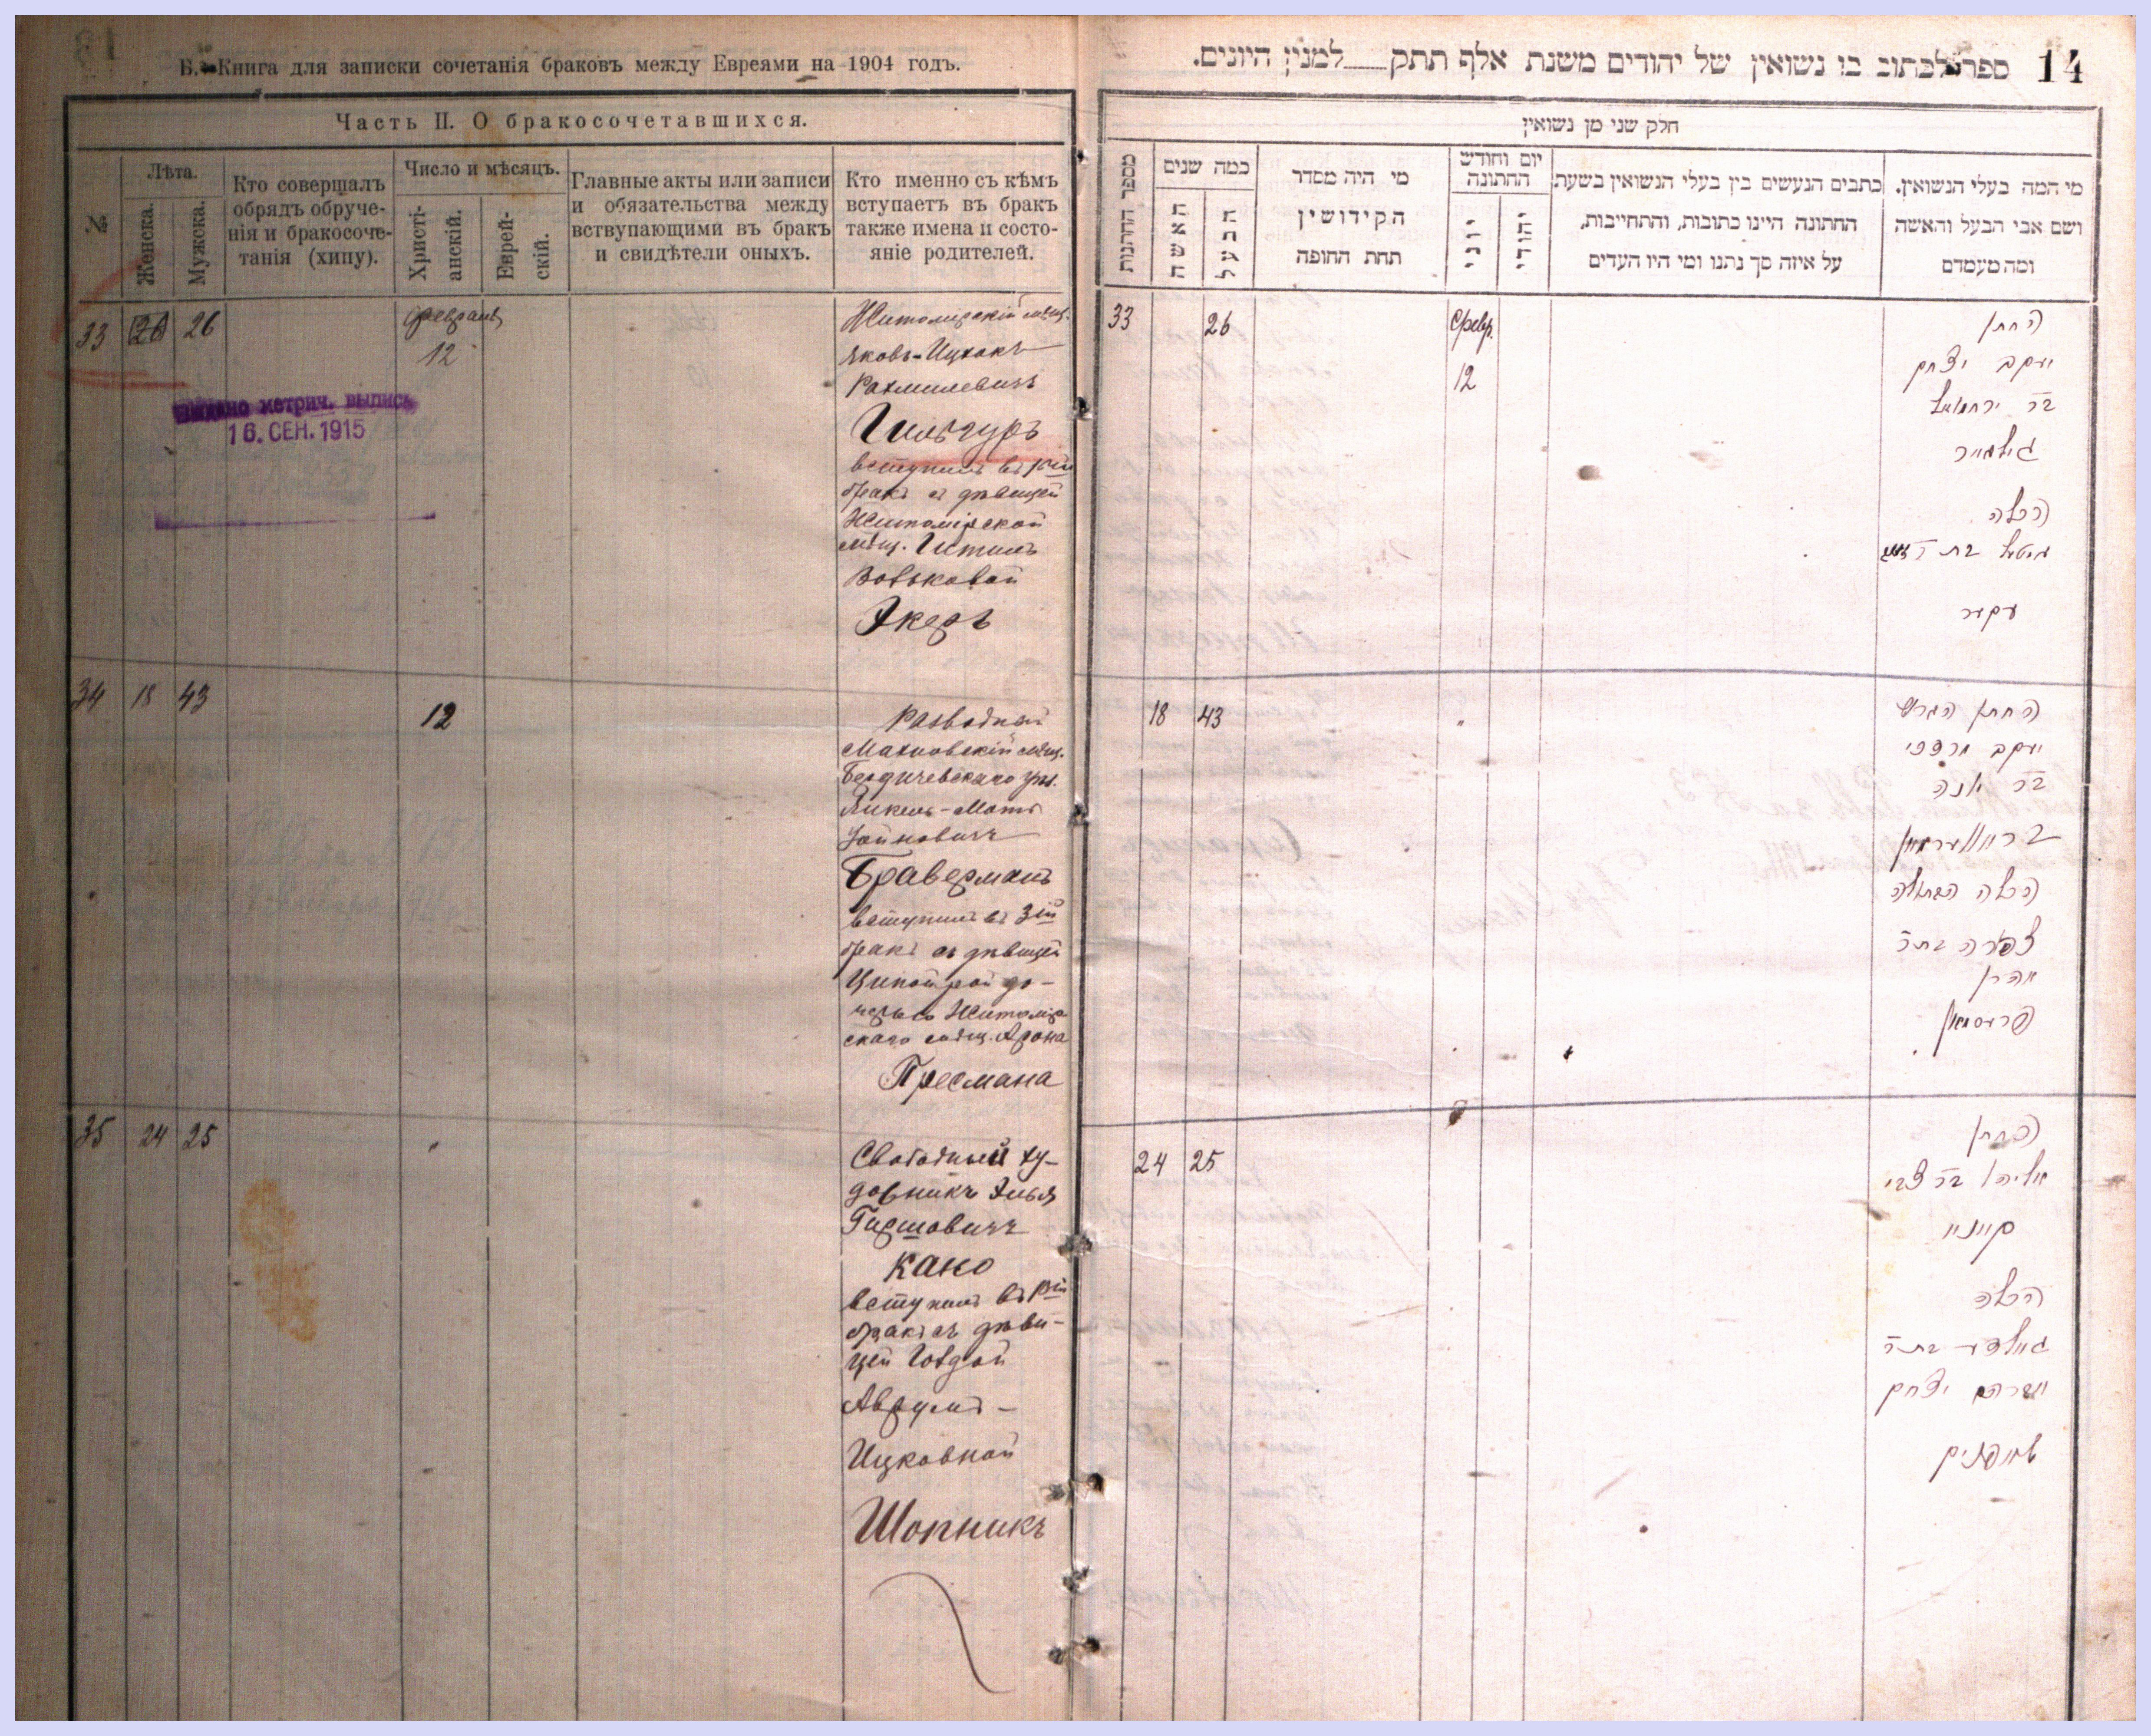 Б. Книга для записки сочетанія браковъ между Евреями на 1904 годъ.
Часть II. О бракосочетавшихся.
№
Лѣта.
Женска.
Мужска.
Кто совершалъ
обрядъ обруче-
нія и бракосоче-
танія (хипу).
Число и мѣсяцъ.
Христі-
анскій.
Еврей-
скій.
Главные акты или записи
и обязательства между
вствупающими въ бракъ
и свидѣтели оныхъ.
Кто именно съ кѣмъ
вступаетъ въ бракъ
также имена и состо-
яніе родителей.
33 26 26
февраль
12
выдано метрич. выпись
16. СЕН. 1915
Житомирскій мѣщ.
Яковъ-Ицхокъ
Рахмилевичъ
Гильгуръ
вступилъ въ 1ый
бракъ съ дѣвицей
Житомірской
мѣщ. Гитлъ
Вольковой
Экеръ
34 18 43
12
Разводной
Махновскій мѣщ.
Бердичевскаго уѣз.
Янкель-Мотъ
Іойновичъ
Браверманъ
вступилъ въ 3ій
бракъ съ дѣвицей
Ципойрой до-
черью Житомір
скаго мѣщ. Арона
Пресмана
35 24 25
"
Свободный ху-
дожникъ Элья
Гершовичъ
Кано
вступилъ въ 1ый
бракъ съ дѣви-
цей Голдой
Аврумъ-
Ицковной
Шопникъ
14
ספר לכתוב בו נשואין של יהודים משנת אלף תתק למנין היונים.
חלק שני מן נשואין
מספר החתנות
כמה שנים
האשה
הבעל
מי היה מסדר
הקידושין
תחת החופה
יום וחודש
החתונה
יוני
יהודי
כתבים הנעשים בין בעלי הנשואין בשעת
החתונה היינו כתובות, והתחייבות,
על איזה סך נתנו ומי היו העדים
מי המה בעלי הנשואין.
ושם אבי הבעל והאשה
ומה מעמדם
33 26
Февр.
12
החתן
יעקב יצחק
בר ירחמיאל
גילגור
הכלה
גיטל בת ר
עקער
18 43
"
החתן הגרוש
יעקב מרדכי
בר יונה
ברווערמאן
הכלה הבתולה
צפורה בת ר
אהרן
פרעסמאן
24 25
החתן
אליהו בר צבי
הכלה
גאלדע בת ר
אברהם יצחק